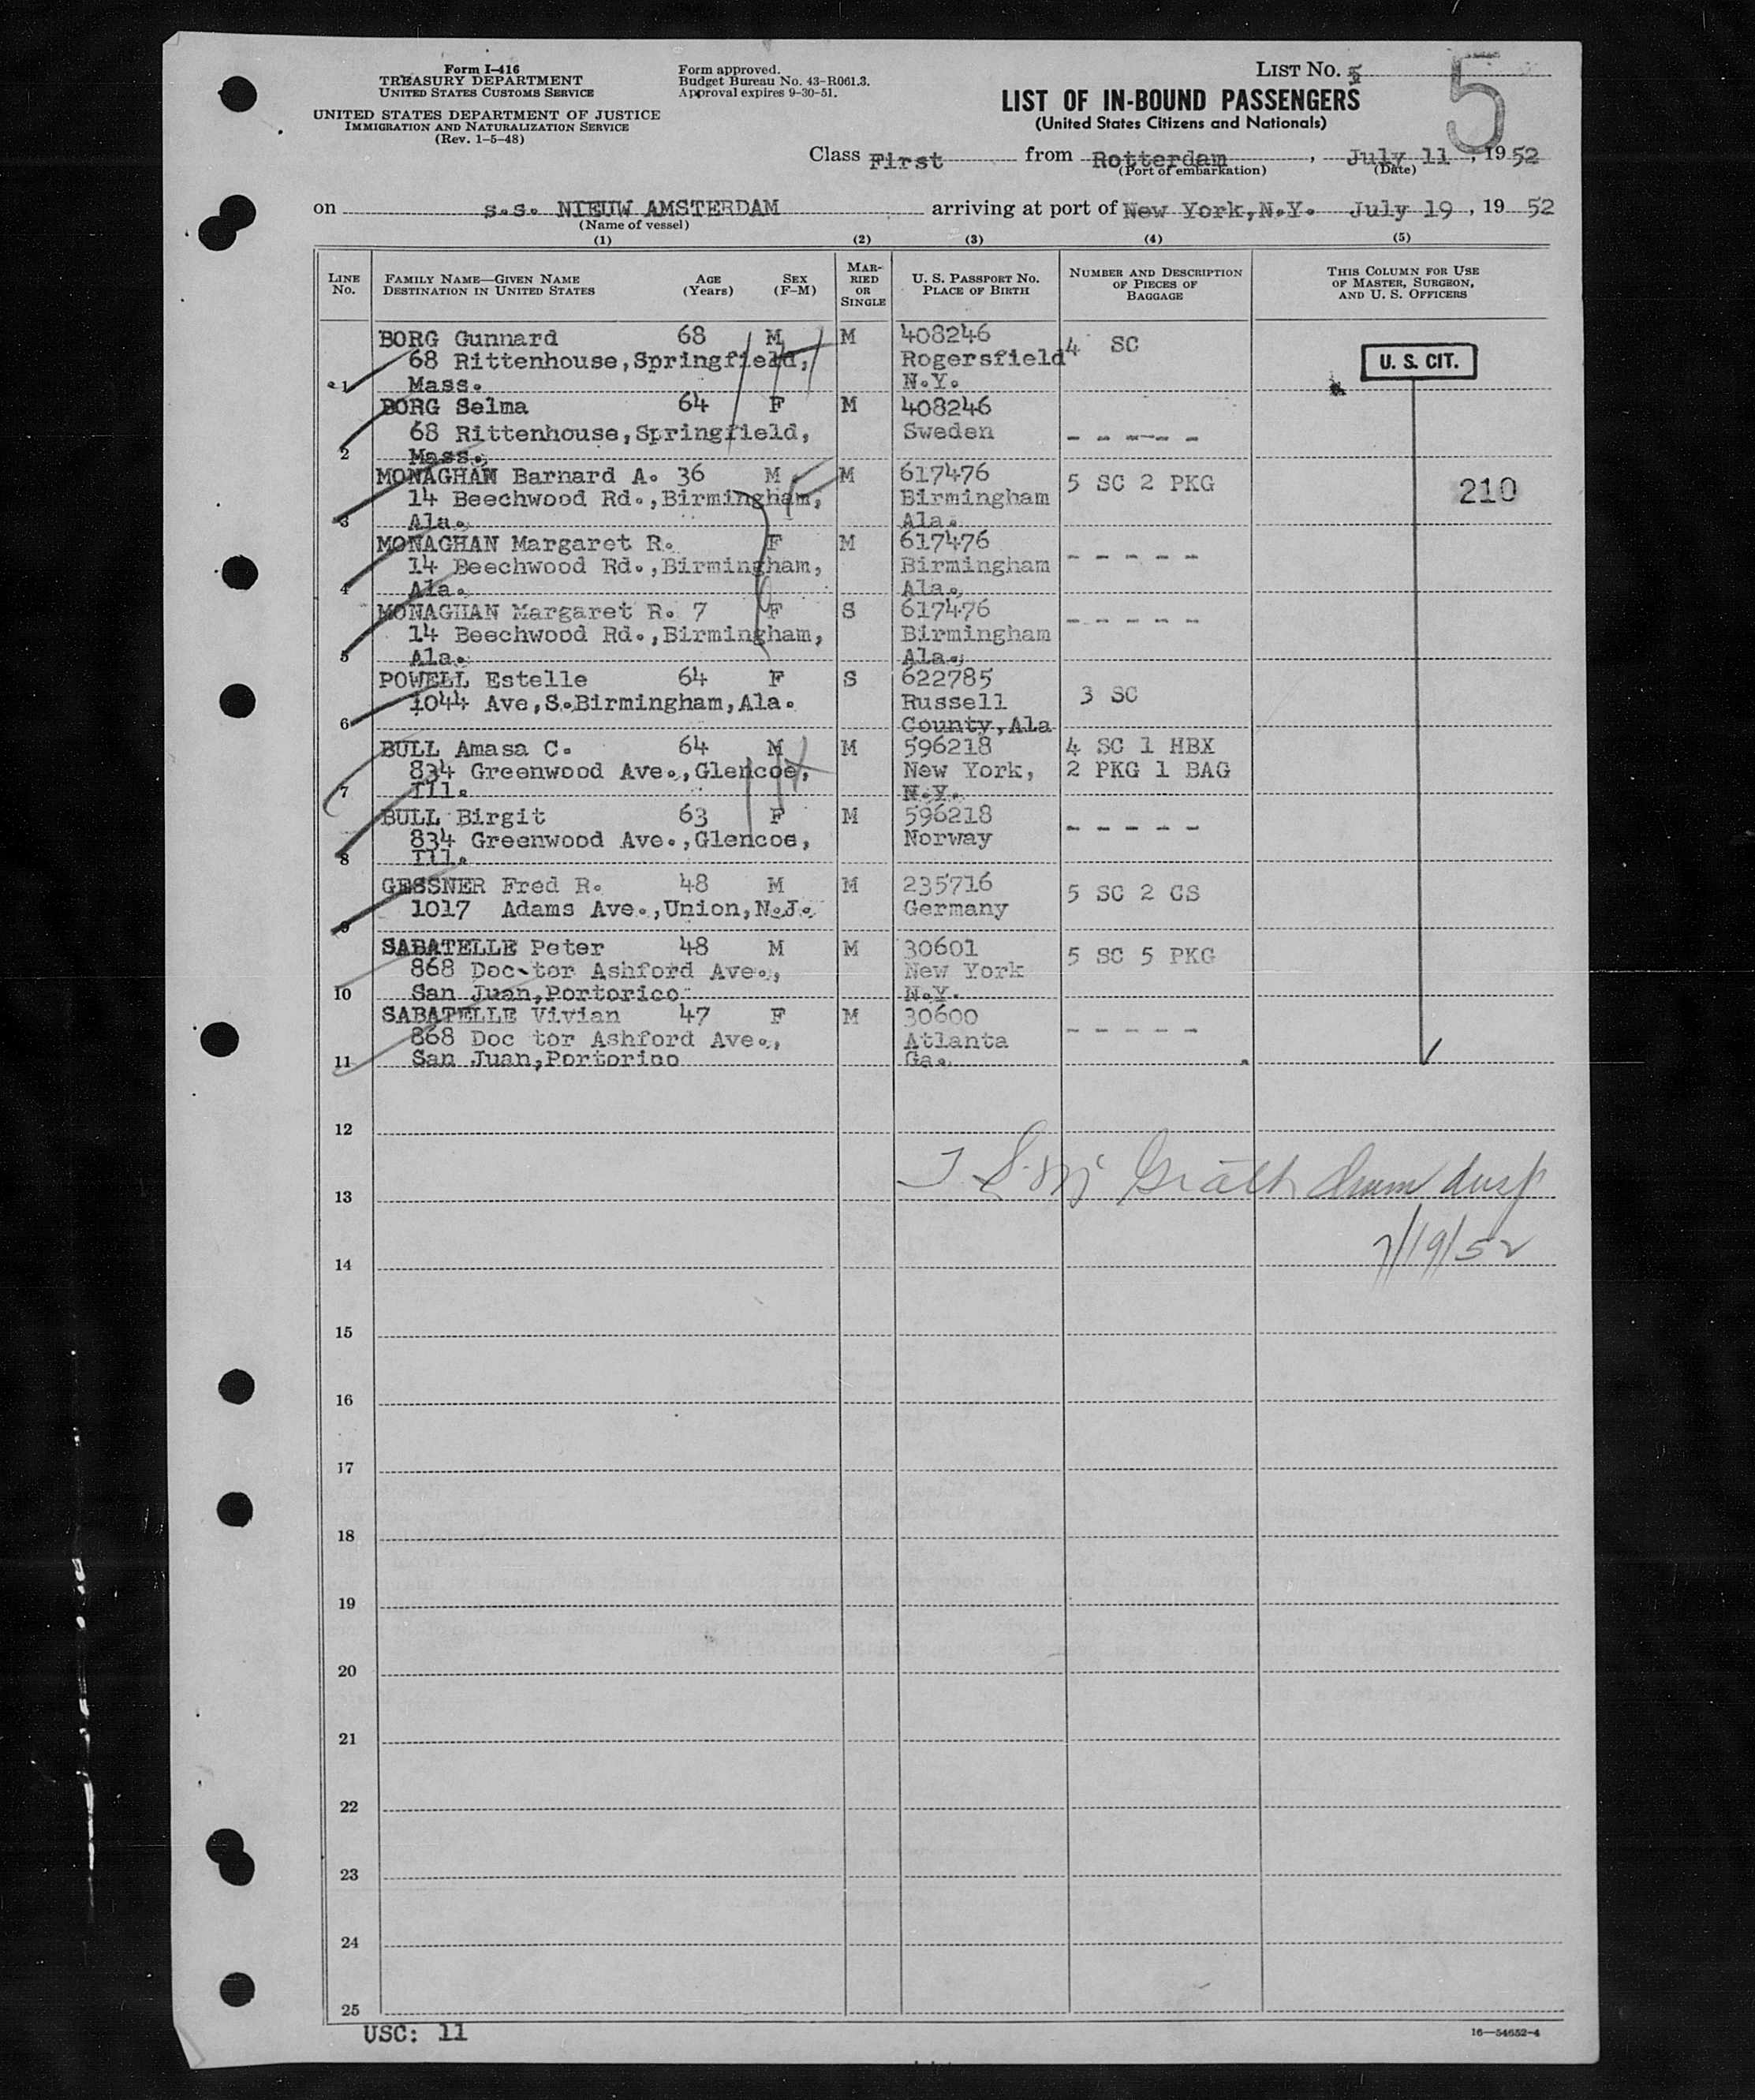 Form I-416
TREASURY DEPARTMENT
UNITED STATES CUSTOMS SERVICE
UNITED STATES DEPARTMENT OF JUSTICE
IMMIGRATION AND NATURALIZATION SERVICE
(Rev. 1-5-48)
Form approved.
Budget Bureau No. 43-R061.3.
Approval expires 9-30-51.
LIST NO. 5
5
LIST OF IN-BOUND PASSENGERS
(United States Citizens and Nationals)
Class First from Rotterdam, July 11, 1952
(Port of embarkation) (Date)
on s.s. NIEUW AMSTERDAM arriving at port of New York,N.Y. July 19, 1952
(Name of vessel)
(1) (2) (3) (4) (5)
LINE No.
FAMILY NAME—GIVEN NAME
DESTINATION IN UNITED STATES
AGE (Years)
SEX (F-M)
MARRIED OR SINGLE
U. S. PASSPORT NO.
PLACE OF BIRTH
NUMBER AND DESCRIPTION OF PIECES OF BAGGAGE
THIS COLUMN FOR USE OF MASTER, SURGEON, AND U. S. OFFICERS
BORG Gunnard 68 M M 408246
68 Rittenhouse,Springfield, Rogersfield 4 SC
1 Mass. N.Y.
U. S. CIT.
BORG Selma 64 F M 408246
68 Rittenhouse,Springfield, Sweden - - --- - -
2 Mass.
MONAGHAN Barnard A. 36 M M 617476
14 Beechwood Rd.,Birmingham, Birmingham 5 SC 2 PKG
3 Ala. Ala.
210
MONAGHAN Margaret R. F M 617476
14 Beechwood Rd.,Birmingham, Birmingham - - - - -
4 Ala. Ala.
MONAGHAN Margaret R. 7 F S 617476
14 Beechwood Rd.,Birmingham, Birmingham - - - - -
5 Ala. Ala.
POWELL Estelle 64 F S 622785
1044 Ave,S.Birmingham,Ala. Russell 3 SC
6 County,Ala
BULL Amasa C. 64 M M 596218 4 SC 1 HBX
834 Greenwood Ave.,Glencoe, New York, 2 PKG 1 BAG
7 Ill. N.Y.
BULL Birgit 63 F M 596218
834 Greenwood Ave.,Glencoe, Norway - - - - -
8 Ill.
GESSNER Fred R. 48 M M 235716
1017 Adams Ave.,Union,N.J. Germany 5 SC 2 CS
9
SABATELLE Peter 48 M M 30601
868 Doc-tor Ashford Ave., New York 5 SC 5 PKG
10 San Juan,Portorico N.Y.
SABATELLE Vivian 47 F M 30600
868 Doc tor Ashford Ave., Atlanta - - - - -
11 San Juan,Portorico Ga.
12
13
7/19/52
14
15
16
17
18
19
20
21
22
23
24
25
USC: 11
16—54652-4